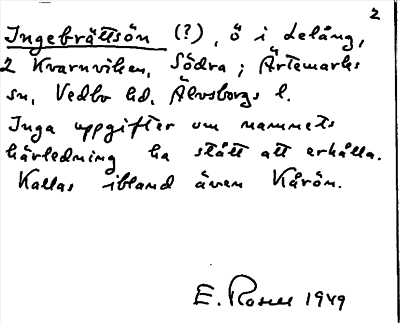 2
Ingebrättsön (?), ö i Lelång,
2 Kvarnviken, Södra; Ärtemarks
sn, Vedbo hd, Älvsborgs l.
Inga uppgifter om namnets
härledning ha stått att erhålla.
Kallas ibland även Kårön.
E. Rosell 1949